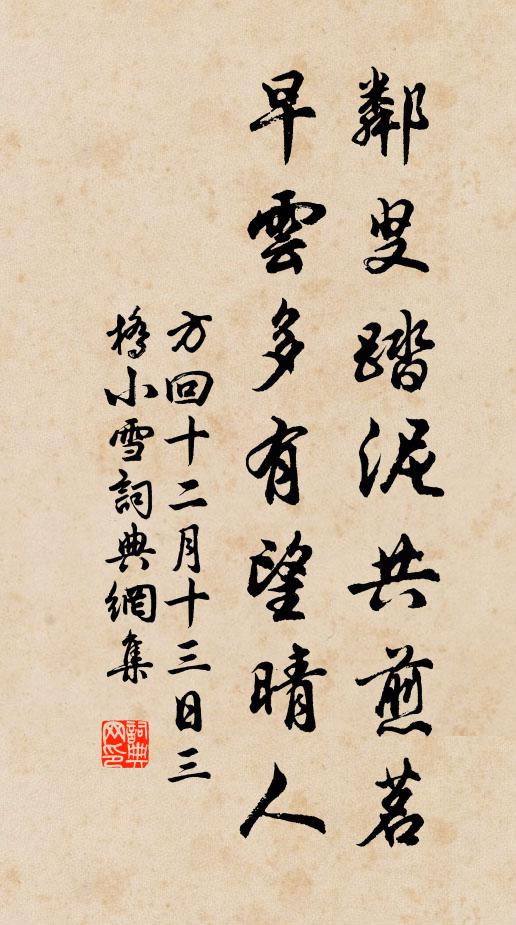 鄰叟踏泥共煎茗
早雲多有望晴人
方回十二月十三日三
橋小雪詞典網集
詞典
网印